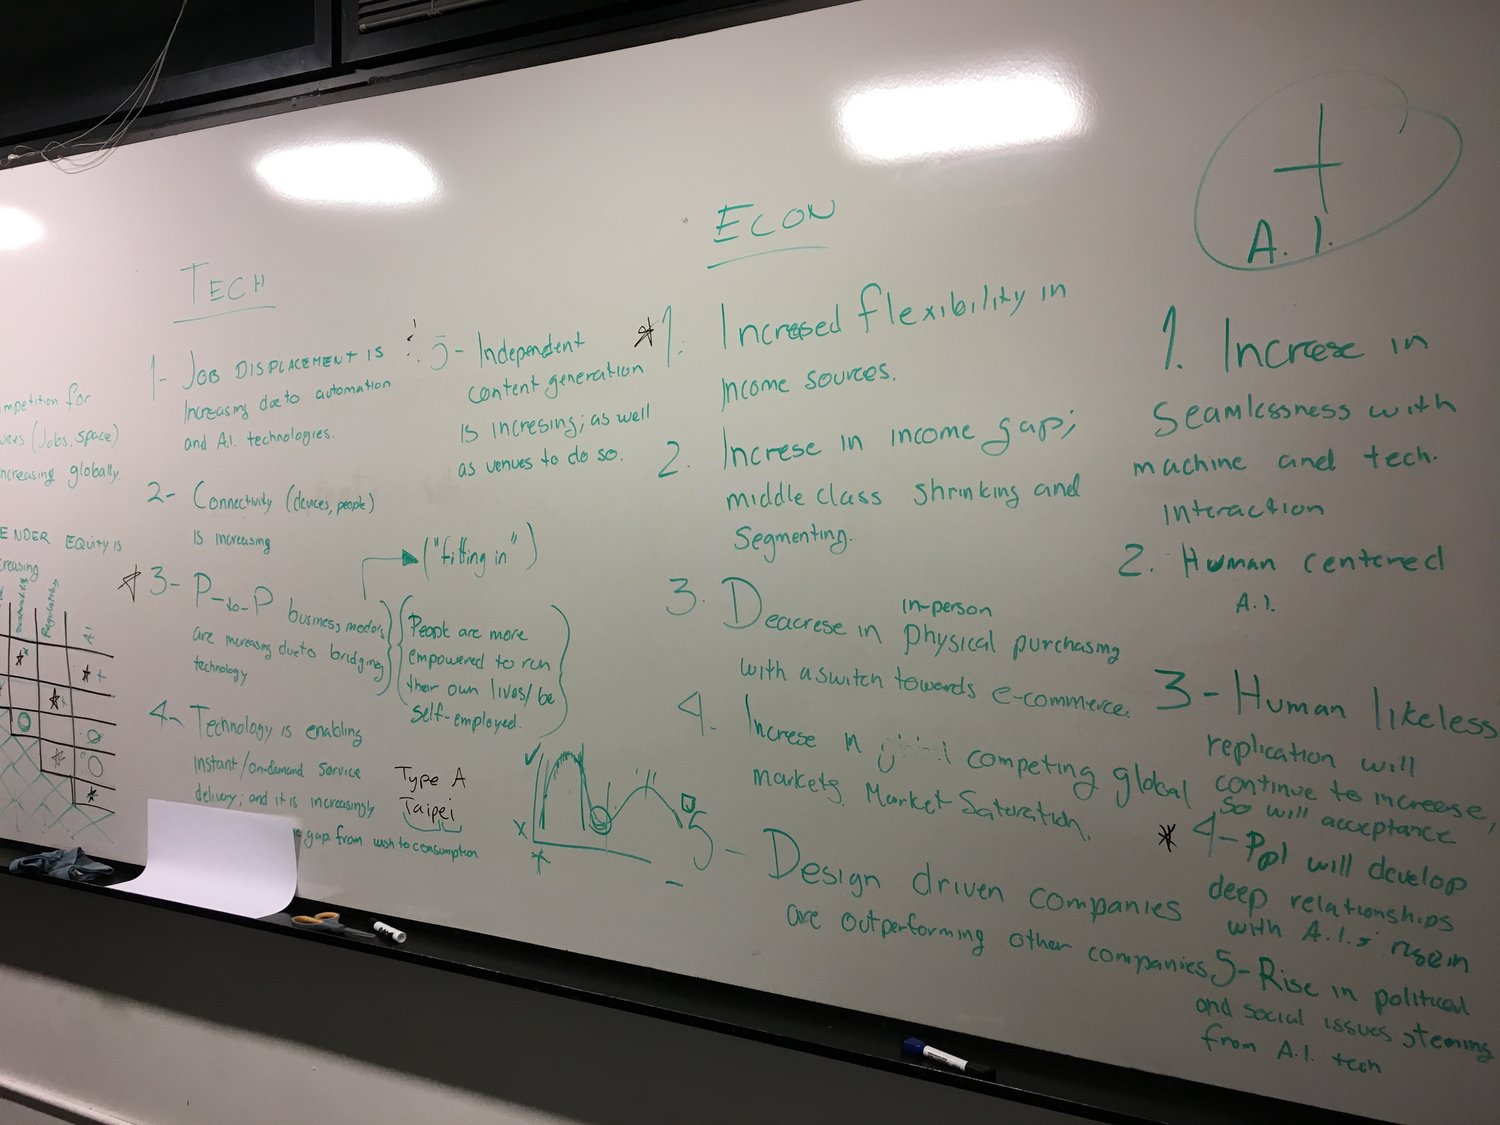 mpetition for
(Jobs, space)
ncreasing globally.
ENDER EQUITY IS
creasing
Regulation
A.I
TECH
1- JOB DISPLACEMENT IS
Increasing due to automation
and A.I. technologies.
2- Connectivity (devices, people)
IS increasing
3- P-to-P business models
are increasing due to bridging
technology
("fitting in")
(People are more
empowered to run
their own lives/be
self-employed.)
4- Technology is enabling
instant/on-demand service
delivery; and it is increasingly
gap from wish to consumption.
Type A
Taipei
X
5- Independent
content generation
IS incresing; as well
as venues to do so.
ECON
1. Incresed flexibility in
Income sources.
2. Increse in income gap;
middle class shrinking and
Segmenting.
in-person
3. Deacrese in physical purchasing
with a switch towards e-commerce.
4. Increse in competing global
markets. Market Saturation.
5- Design driven companies
are outperforming other companies
+
A.I.
1. Increese in
Seamlessness with
machine and tech.
Interaction
2. Human centered
A.I.
3- Human likeless
replication will
continue to increase,
so will acceptance
4- Ppl will develop
deep relationships
with A.I.s rise in
5- Rise in political
and social issues steming
from A.I. tech